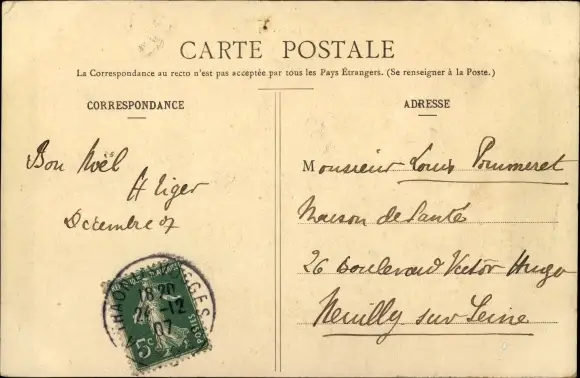 CARTE POSTALE
La Correspondance au recto n'est pas acceptée par tous les Pays Étrangers. (Se renseigner à la Poste.)
CORRESPONDANCE
Bon Noël
H Liger
Décembre 07
ADRESSE
Monsieur Louis Prumeret
Maison de Santé
26 Boulevard Victor Hugo
Neuilly sur Seine
THAON
VOSGES
18 20
24 -12
07
POSTES
5c